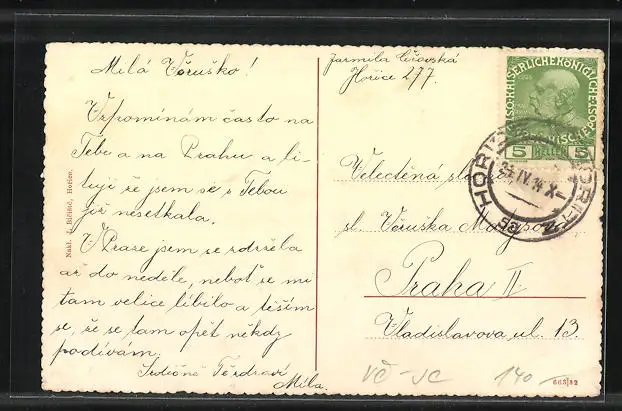 Milá Věruško!
Vzpomínám často na
Tebe a na Prahu a li-
tuji že jsem se s Tebou
již nesetkala.
V Praze jsem se zdržela
až do neděle, neboť se mi
tam velice líbilo a těším
se, že se tam opět někdy
podívám.
Srdečně Tě zdraví
Míla.
Nakl. J. Hořice.
Jarmila
Hořice 277.
KAISERLICHE KÖNIGLICHE
5 HELLER 5
HOŘ
25 IV 14 X-
Velectěná
sl. Věruška
Praha II
Vladislavova ul. 13.
VČ-JC 140
663/82